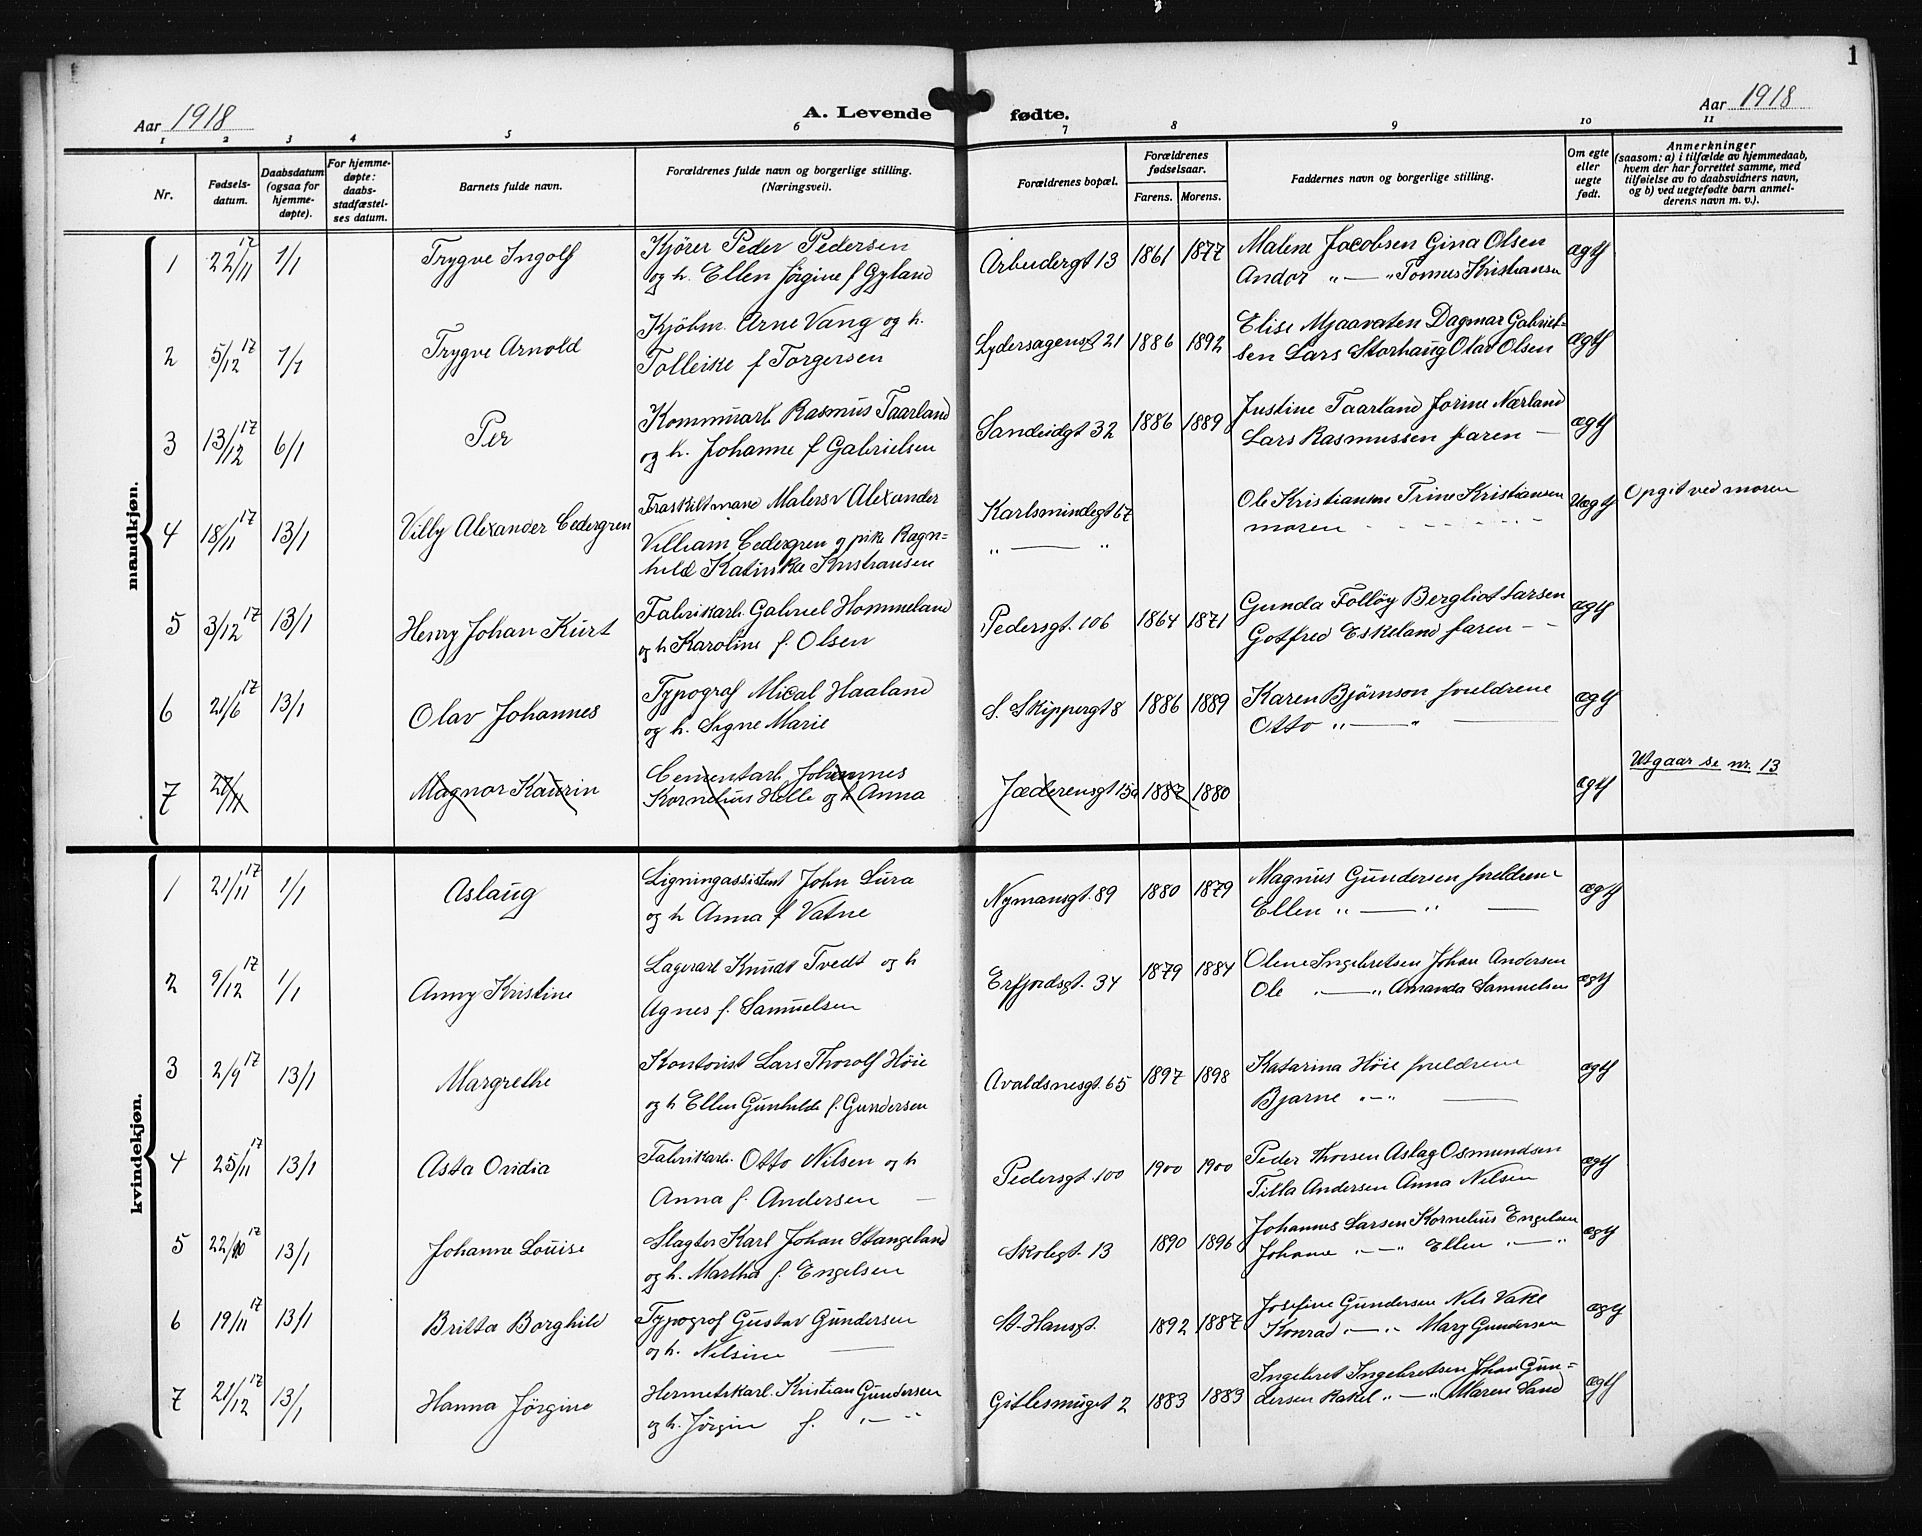 1
Aar 1918
A. Levende fødte.
Aar 1918
1 2 3 4 5 6 7 8 9 10 11
Nr.
Fødsels-
datum.
Daabsdatum
(ogsaa for
hjemme-
døpte).
For hjemme-
døpte:
daabs-
stadfæstel-
ses datum.
Barnets fulde navn.
Forældrenes fulde navn og borgerlige stilling.
(Næringsvei).
Forældrenes bopæl.
Forældrenes
fødselsaar.
Farens. Morens.
Faddernes navn og borgerlige stilling.
Om egte
eller
uegte
født.
Anmerkninger
(saasom: a) i tilfælde av hjemmedaab,
hvem der har forrettet samme, med
tilføielse av to daabsvidners navn,
og b) ved uegtefødte barn anmel-
derens navn m. v.).
mandkjøn.
1 22/11 17 1/1 Trygve Ingolf
Kjører Peder Pedersen
og h. Ellen Jørgine f Gyland
Arbeidergt 13 1861 1877
Malene Jacobsen Gina Olsen
Andor „ — „ Tomas Kristiansen
ægtf
2 5/12 17 1/1 Trygve Arnold
Kjöbm. Arne Vang og h.
Tolleike f Torgersen
Lydersagensgt 21 1886 1892
Elise Mjaavaten Dagmar Gabriel-
sen Lars Storhaug Olav Olsen
ægtf
3 13/12 17 6/1 Per
Kommuarb Rasmus Taarland
og h. Johanne f Gabrielsen
Sandeidgt 32 1886 1889
Justine Taarland Jorine Nærland
Lars Rasmussen faren —
ægtf
4 18/11 17 13/1 Villy Alexander Cedergren
Fraskiltmand Malersv Alexander
Villiam Cedergren og pike Ragn=
hild Katinka Kristiansen
Karlsmindegt 67
„ — „
Ole Kristiansen Trine Kristiansen
moren
Uægtf
Opgit ved moren
5 3/12 17 13/1 Henry Johan Kurt
Fabrikarb. Gabriel Hommeland
og h Karoline f. Olsen
Pedersgt. 106 1864 1871
Gunda Folløy Bergliot Larsen
Gotfred Eskeland faren — —
ægtf
6 21/6 17 13/1 Olav Johannes
Typograf Mical Haaland
og h. Signe Marie
S. Skippergt 8 1886 1889
Karen Bjørnson foreldrene
Otto „ — „ —
ægtf
7 27/11 Magnor Kaurin
Cementarb Johannes
Kornelius Helle og h Anna
Jæderensgt 150 1887 1880
ægtf
Utgaar se nr. 13
kvindekjøn.
1 21/11 17 1/1 Aslaug
Ligningassistent John Lura
og h Anna f Vatne
Nymansgt. 89 1880 1879
Magnus Gundersen foreldrene
Ellen „ — „ —
ægtf
2 9/12 17 1/1 Anny Kristine
Lagerarb Knudt Tvedt og h
Agnes f. Samuelsen
Erfjordsgt. 34 1879 1884
Olene Ingebretsen Johan Andersen
Ole „ — „ Amanda Samuelsen
ægtf
3 2/9 17 13/1 Margrethe
Kontorist Lars Thorolf Høie
og h Ellen Gunhilde f. Gundersen
Avaldsnesgt. 65 1897 1898
Katarina Høie foreldrene
Bjarne „ — „ —
ægtf
4 25/11 17 13/1 Asta Ovidia
Fabrikarb. Otto Nilsen og h
Anna f. Andersen —
Pedersgt. 100 1900 1900
Peder Thorsen Aslag Osmundsen
Tilla Andersen Anna Nilsen
ægtf
5 22/10 17 13/1 Johanne Louise
Slagter Karl Johan Stangeland
og h. Martha f. Engelsen
Skolegt. 13 1890 1896
Johannes Larsen Kornelius Engelsen
Johanne „ — „ Ellen „ — „
ægtf
6 19/11 17 13/1 Britta Borghild
Typograf Gustav Gundersen
og h. Nilsine —
St. Hansgt. 1892 1887
Josefine Gundersen Nils Vake
Konrad „ — „ Mary Gundersen
ægtf
7 21/12 17 13/1 Hanna Jørgine
Hermetikarb. Kristian Gundersen
og h. Jørgine f. „ — „
Gitlesmuget 2 1883 1883
Ingebret Ingebretsen Johan Gun=
dersen Rakel „ — „ Maren Sand
ægtf